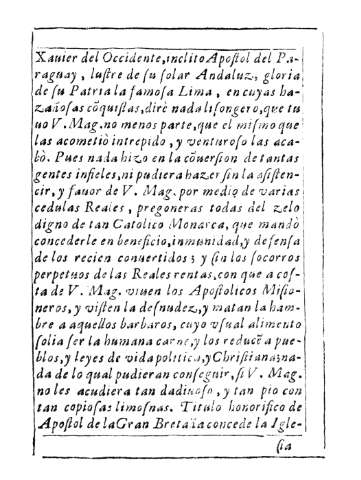 Xauier del Occidente,inclito Apoſtol del Pa-
raguay, luſtre de ſu ſolar Andaluz, gloria
de ſu Patria la famoſa Lima, en cuyas ha-
zañoſas cõquiſtas,dirè nada liſongero,que tu
uo V. Mag.no menos parte,que el miſmo que
las acometiò intrepido, y venturoſo las aca-
bò. Pues nada hizo en la cõuerſion de tantas
gentes infieles,ni pudiera hazer ſin la aſiſten-
cir, y fauor de V. Mag. por medio de varias
cedulas Reales, pregoneras todas del zelo
digno de tan Catolico Monarca, que mandò
concederle en beneficio,inmunidad,y defenſa
de los recien conuertidos; y ſin los ſocorros
perpetuos de las Reales rentas, con que a coſ-
ta de V. Mag. viuen los Apoſtolicos Miſio-
neros, y viſten la deſnudez,y matan la ham-
bre a aquellos barbaros, cuyo vſual alimento
ſolia ſer la humana carne,y los reducẽ a pue-
blos,y leyes de vida politica,y Chriſtiana;na-
da de lo qual pudieran conſeguir,ſi V. Mag.
no les acudiera tan dadiuoſo, y tan pio con
tan copioſas limoſnas. Titulo honorifico de
Apoſtol de la Gran Bretaïa concede la Igle-
ſia